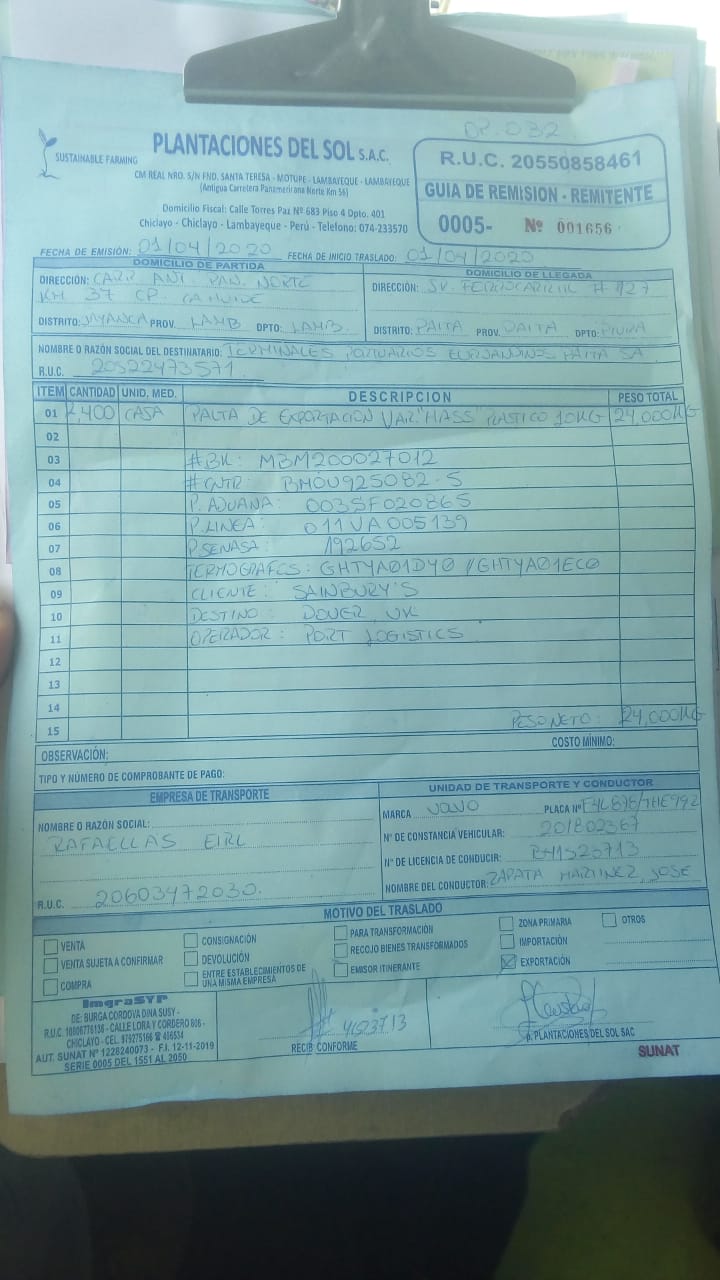 OP. 032
SUSTAINABLE FARMING
PLANTACIONES DEL SOL S.A.C.
CM REAL NRO. S/N FND. SANTA TERESA - MOTUPE - LAMBAYEQUE - LAMBAYEQUE
(Antigua Carretera Panamericana Norte Km 56)
Domicilio Fiscal: Calle Torres Paz Nº 683 Piso 4 Dpto. 401
Chiclayo - Chiclayo - Lambayeque - Perú - Telefono: 074-233570
R.U.C. 20550858461
GUIA DE REMISION - REMITENTE
0005- Nº 001656
FECHA DE EMISIÓN: 01/04/2020 FECHA DE INICIO TRASLADO: 01/04/2020
DOMICILIO DE PARTIDA
DIRECCIÓN: CARR ANT PAN. NORTE
KM 37 CP. CAHUIDE
DISTRITO: JAYANCA PROV. LAMB DPTO: LAMB.
DOMICILIO DE LLEGADA
DIRECCIÓN: SV. FERROCARRIL # 127
DISTRITO: PAITA PROV. PAITA DPTO: PIURA
NOMBRE O RAZÓN SOCIAL DEL DESTINATARIO: TERMINALES PORTUARIOS EUROANDINOS PAITA SA
R.U.C. 20522473571
ITEM CANTIDAD UNID. MED. DESCRIPCION PESO TOTAL
01 2,400 CAJA PALTA DE EXPORTACION VAR. "HASS" PLASTICO 10KG 24,000KG
02
03 #BK: MBM200027012
04 #CNTR: BMOU925082-5
05 P. ADUANA: 003SF020865
06 P. LINEA: 011VA005139
07 P. SENASA: 192652
08 TERMOGRAFOS: GHTYA01DY0 // GHTYA01EC0
09 CLIENTE: SAINBURY'S
10 DESTINO: DOVER, UK
11 OPERADOR: PORT LOGISTICS
12
13
14
15 PESO NETO: 24,000KG
OBSERVACIÓN: COSTO MÍNIMO:
TIPO Y NÚMERO DE COMPROBANTE DE PAGO:
EMPRESA DE TRANSPORTE
NOMBRE O RAZÓN SOCIAL:
RAFAELLAS EIRL
R.U.C. 20603472030.
UNIDAD DE TRANSPORTE Y CONDUCTOR
MARCA VOLVO PLACA Nº
Nº DE CONSTANCIA VEHICULAR: 201802367
Nº DE LICENCIA DE CONDUCIR:
NOMBRE DEL CONDUCTOR: ZAPATA MARTINEZ, JOSE
MOTIVO DEL TRASLADO
VENTA
VENTA SUJETA A CONFIRMAR
COMPRA
CONSIGNACIÓN
DEVOLUCIÓN
ENTRE ESTABLECIMIENTOS DE
UNA MISMA EMPRESA
PARA TRANSFORMACIÓN
RECOJO BIENES TRANSFORMADOS
EMISOR ITINERANTE
ZONA PRIMARIA
IMPORTACIÓN
EXPORTACIÓN
OTROS
ImgraSYP
DE: BURGA CORDOVA DINA SUSY -
R.U.C. 10806776136 - CALLE LORA Y CORDERO 806 -
CHICLAYO - CEL. 979275166 ☎ 456534
AUT. SUNAT Nº 1228240073 - F.I. 12-11-2019
SERIE 0005 DEL 1551 AL 2050
RECIBI CONFORME
p. PLANTACIONES DEL SOL SAC
SUNAT